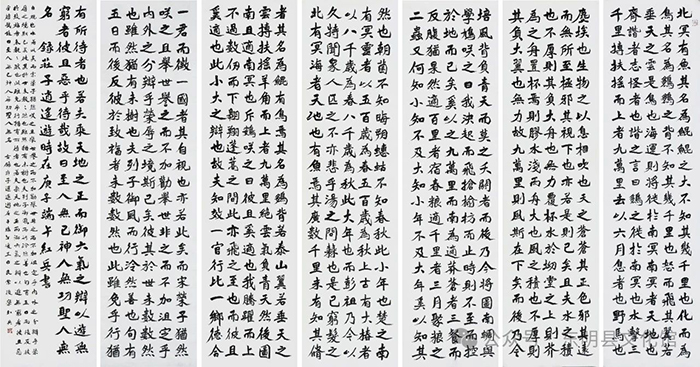 北冥有魚其名為鯤鯤之大不知其幾千里也化而為
鳥其名為鵬鵬之背不知其幾千里也怒而飛其翼若
垂天之雲是鳥也海運則將徙於南冥南冥者天池也
齊諧者志怪者也諧之言曰鵬之徙於南冥也水擊三
千里摶扶搖而上者九萬里去以六月息者也野馬也
塵埃也生物之以息相吹也天之蒼蒼其正色邪其遠
而無所至極邪其視下也亦若是則已矣且夫水之積
也不厚則其負大舟也無力覆杯水於坳堂之上則芥
為之舟置杯焉則膠水淺而舟大也風之積也不厚則
其負大翼也無力故九萬里則風斯在下矣而後乃今
培風背負青天而莫之夭閼者而後乃今將圖南蜩與
學鳩笑之曰我決起而飛搶榆枋時則不至而控
於地而已矣奚以之九萬里而南為適莽蒼者三餐而
反腹猶果然適百里者宿舂糧適千里者三月聚糧之
二蟲又何知小知不及大知小年不及大年奚以知其
然也朝菌不知晦朔蟪蛄不知春秋此小年也楚之南
有冥靈者以五百歲為春五百歲為秋上古有大椿者
以八千歲為春八千歲為秋此大年也而彭祖乃今以
久特聞眾人匹之不亦悲乎湯之問棘也是已窮髮之
北有冥海者天池也有魚焉其廣數千里未有知其脩
者其名為鯤有鳥焉其名為鵬背若泰山翼若垂天之
雲摶扶搖羊角而上者九萬里絕雲氣負青天然後圖
南且適南冥也斥鴳笑之曰彼且奚適也我騰躍而上
不過數仞而下翱翔蓬蒿之間此亦飛之至也而彼且
奚適也此小大之辯也故夫知效一官行比一鄉德合
一君而徵一國者其自視也亦若此矣而宋榮子猶然
笑之且舉世譽之而不加勸舉世非之而不加沮定乎
內外之分辯乎榮辱之境斯已矣彼其於世未數數然
也雖然猶有未樹也夫列子御風而行泠然善也旬有
五日而後反彼於致福者未數數然也此雖免乎行猶
有所待者也若夫乘天地之正而御六氣之辯以遊無
窮者彼且惡乎待哉故曰至人無己神人無功聖人無
名 錄莊子逍遙遊時在庚子端午紅兵書
公众号·东明县文化馆